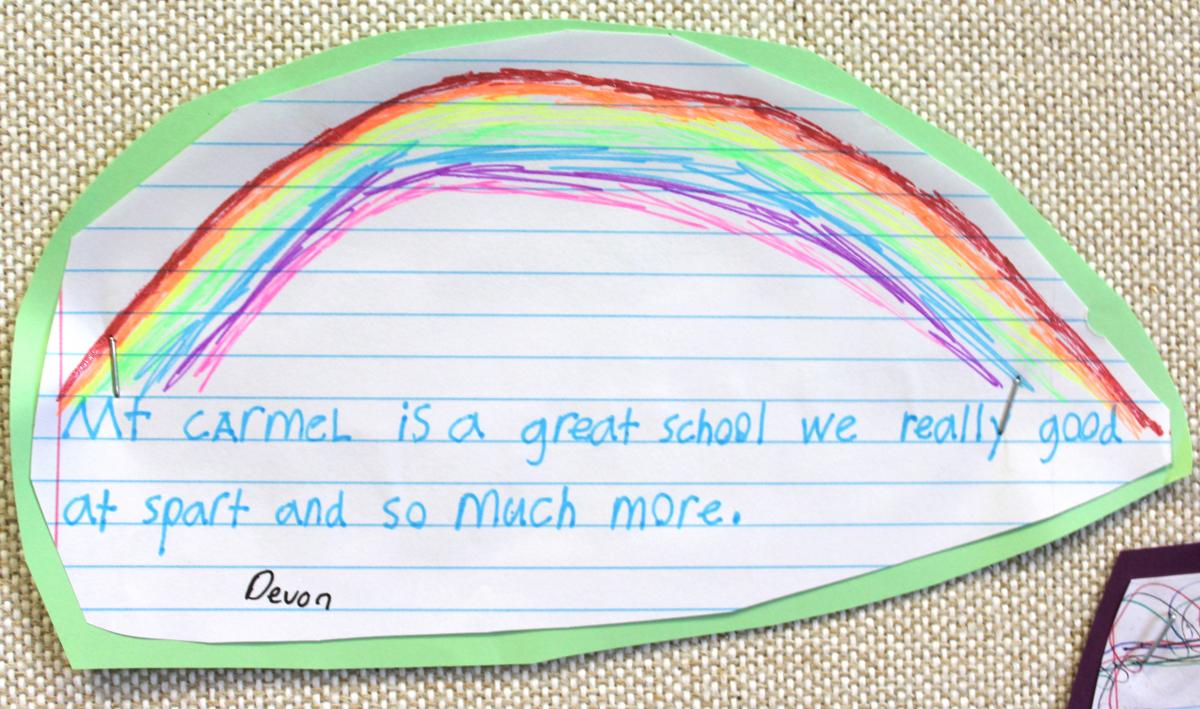 Mt CArmeL is a great school we really good
at spart and so much more.
Devon